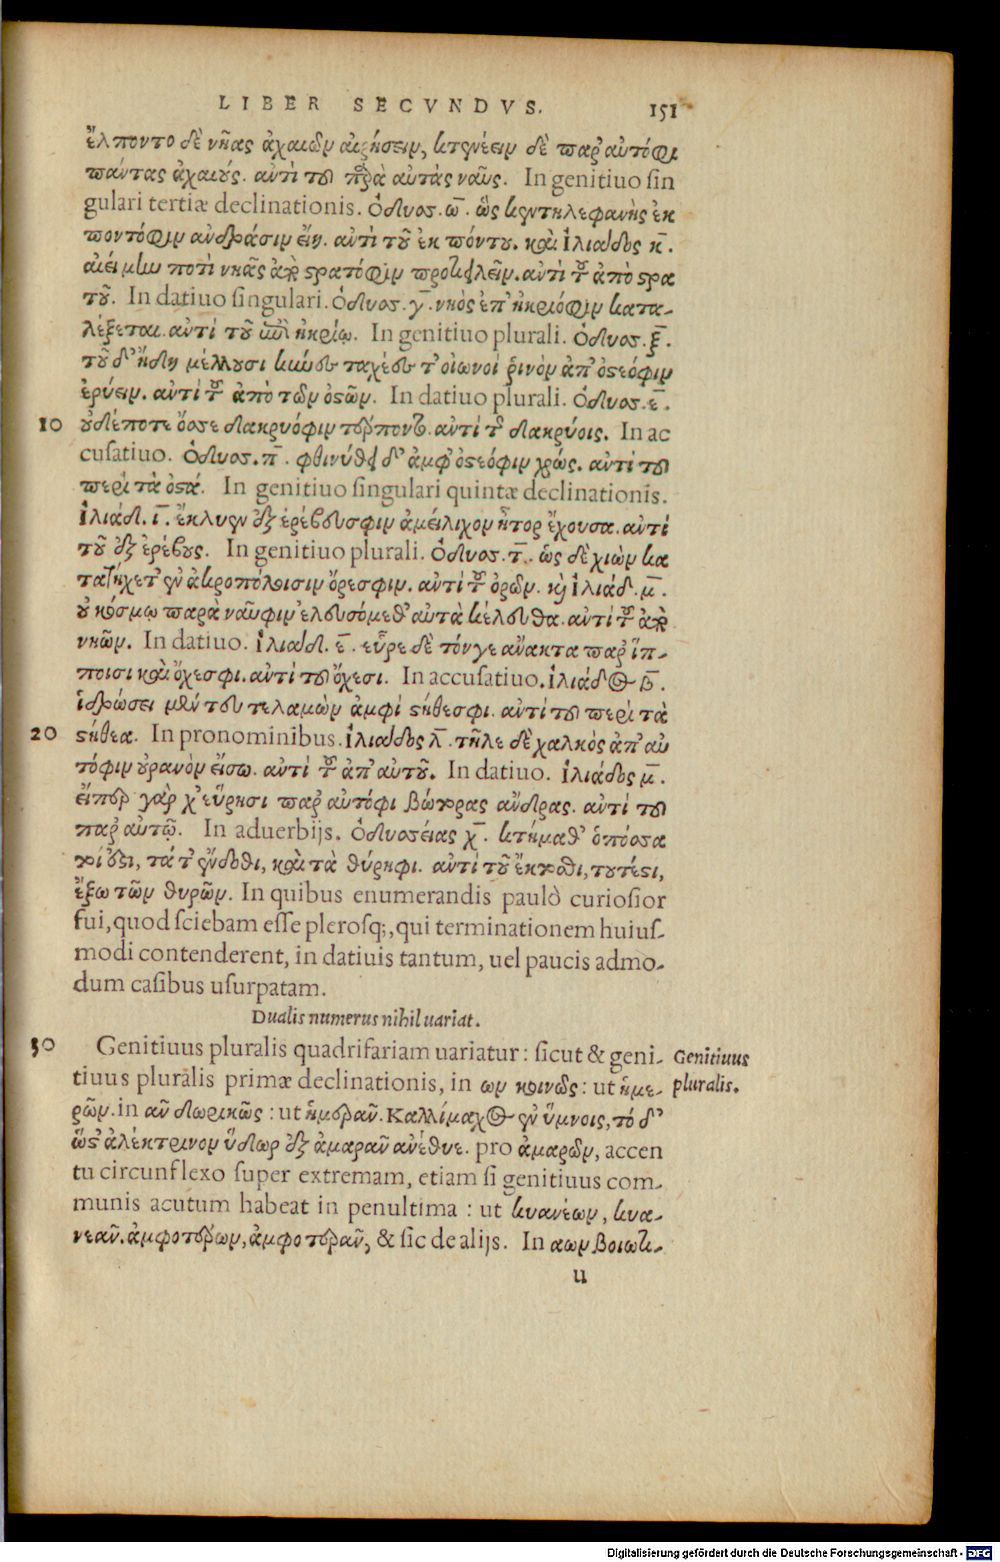 LIBER SECVNDVS. 151
ἔλποντο δὲ νῆας ἀχαιῶν αἱρήσειν, κτενέειν δὲ παρ' αὐτόφι
πάντας ἀχαιούς. ἀντὶ τοῦ παρὰ αὐτὰς ναῦς. In genitiuo sin
gulari tertiæ declinationis. Ὀδυσσ. ω̄. ὣς κεν τηλεφανὴς ἐκ
ποντόφιν ἀνδράσιν εἴη. ἀντὶ τοῦ ἐκ πόντου. καὶ Ἰλιάδος κ̄.
αἰεὶ μὲν ποτὶ νηᾶς ἀπὸ στρατόφιν προτιειλεῖν. ἀντὶ τοῦ ἀπὸ στρα
τοῦ. In datiuo singulari. Ὀδυσσ. γ̄. νηὸς ἐπ' ἠκριόφιν κατα-
λέξεται. ἀντὶ τοῦ ἐπὶ ἠκρίῳ. In genitiuo plurali. Ὀδυσσ. ξ̄.
τοῦ δ' ἤδη μέλλουσι κύνες ταχέες τ' οἰωνοὶ ῥινὸν ἀπ' ὀστεόφιν
ἐρύειν. ἀντὶ τοῦ ἀπὸ τῶν ὀστῶν. In datiuo plurali. Ὀδυσσ. ε̄.
10 οὐδέποτε ὄσσε δακρυόφιν τέρποντο. ἀντὶ τοῦ δακρύοις. In ac
cusatiuo. Ὀδυσσ. π̄. φθινύθει δ' ἀμφ' ὀστεόφιν χρώς. ἀντὶ τοῦ
περὶ τὰ ὀστᾶ. In genitiuo singulari quintæ declinationis.
Ἰλιάδ. ῑ. ἔκλυεν ἐξ ἐρέβευσφιν ἀμείλιχον ἦτορ ἔχουσα. ἀντὶ
τοῦ ἐξ ἐρέβους. In genitiuo plurali. Ὀδυσσ. τ̄. ὡς δὲ χιὼν κα
τατήκετ' ἐν ἀκροπόλοισιν ὄρεσφιν. ἀντὶ τοῦ ὀρῶν. καὶ Ἰλιάδ. μ̄.
οὐ κόσμῳ παρὰ ναῦφιν ἐλευσόμεθ' αὐτὰ κέλευθα. ἀντὶ τοῦ ἀπὸ
νηῶν. In datiuo. Ἰλιάδ. ε̄. εὗρε δὲ τόνγε ἄνακτα παρ' ἵπ-
ποισι καὶ ὄχεσφι. ἀντὶ τοῦ ὄχεσι. In accusatiuo. Ἰλιάδος β̄.
ἱδρώσει μέν τευ τελαμὼν ἀμφὶ στήθεσφι. ἀντὶ τοῦ περὶ τὰ
20 στήθεα. In pronominibus. Ἰλιάδος λ̄. τῆλε δὲ χαλκὸς ἀπ' αὐ
τόφιν οὐρανὸν εἴσω. ἀντὶ τοῦ ἀπ' αὐτοῦ. In datiuo. Ἰλιάδος μ̄.
εἴπερ γάρ χ' εὕρησι παρ' αὐτόφι βώτορας ἄνδρας. ἀντὶ τοῦ
παρ' αὐτῷ. In aduerbijs. Ὀδυσσείας χ̄. κτήμαθ' ὁπόσσα
τοί ἐστι, τά τ' ἔνδοθι, καὶ τὰ θύρηφι. ἀντὶ τοῦ ἔκτοθι, τουτέστι,
ἔξω τῶν θυρῶν. In quibus enumerandis paulò curiosior
fui, quod sciebam esse plerosq;, qui terminationem huius-
modi contenderent, in datiuis tantum, uel paucis admo-
dum casibus usurpatam.
Dualis numerus nihil uariat.
30 Genitiuus pluralis quadrifariam uariatur: sicut & geni- Genitiuus
tiuus pluralis primæ declinationis, in ων κοινῶς: ut ἡμε- pluralis.
ρῶν. in ᾶν δωρικῶς: ut ἡμερᾶν. Καλλίμαχος ἐν ὕμνοις, τὸ δ'
ὥστ' ἀλέκτρινον ὕδωρ ἐξ ἀμαρᾶν ἀνέθυε. pro ἀμαρῶν, accen
tu circunflexo super extremam, etiam si genitiuus com-
munis acutum habeat in penultima: ut κυανέων, κυα-
νεᾶν. ἀμφοτέρων, ἀμφοτερᾶν, & sic de alijs. In αων βοιωτι-
u
Digitalisierung gefördert durch die Deutsche Forschungsgemeinschaft - DFG